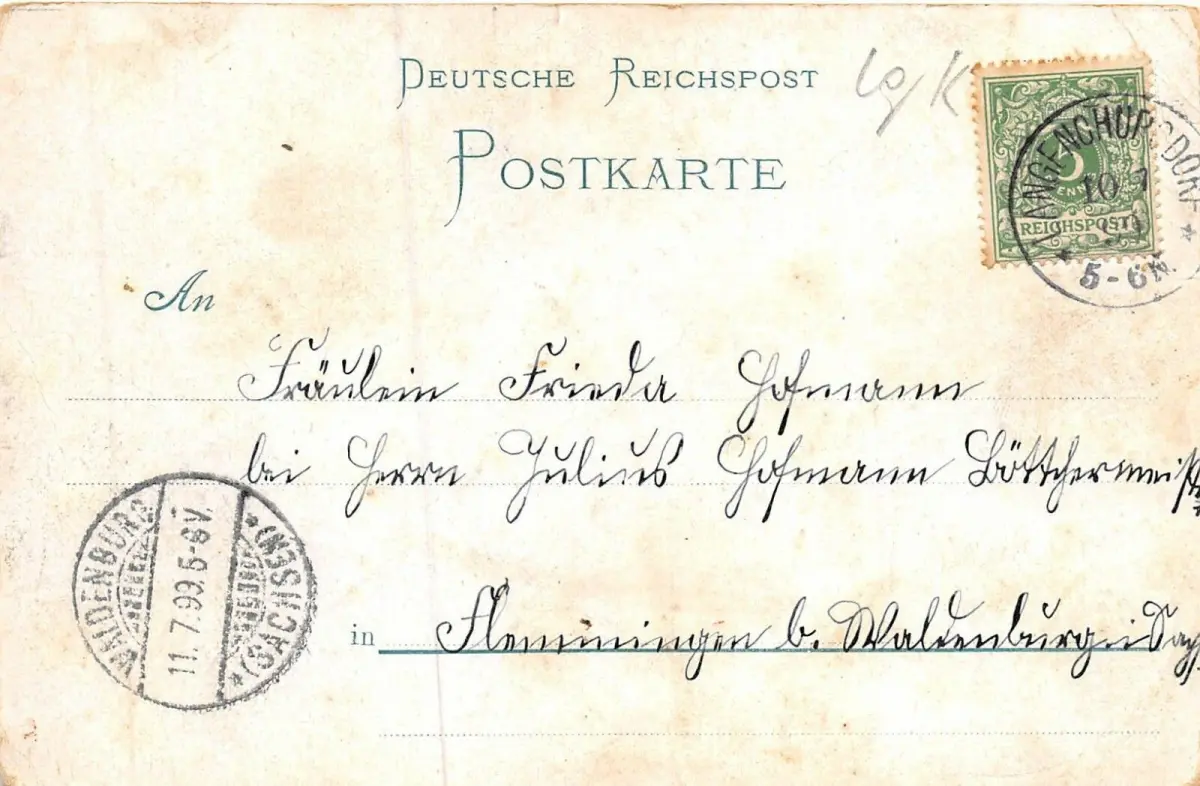 DEUTSCHE REICHSPOST
POSTKARTE
LANGENCHURSDORF
5
10 7
REICHSPOST
99
5-6N.
An
Fräulein Frieda Hofmann
bei Herrn Julius Hofmann Böttchermeist
in Flemmingen b. Waldenburg i Sachs
WALDENBURG
11.7.99.5-6V.
(SACHSEN)